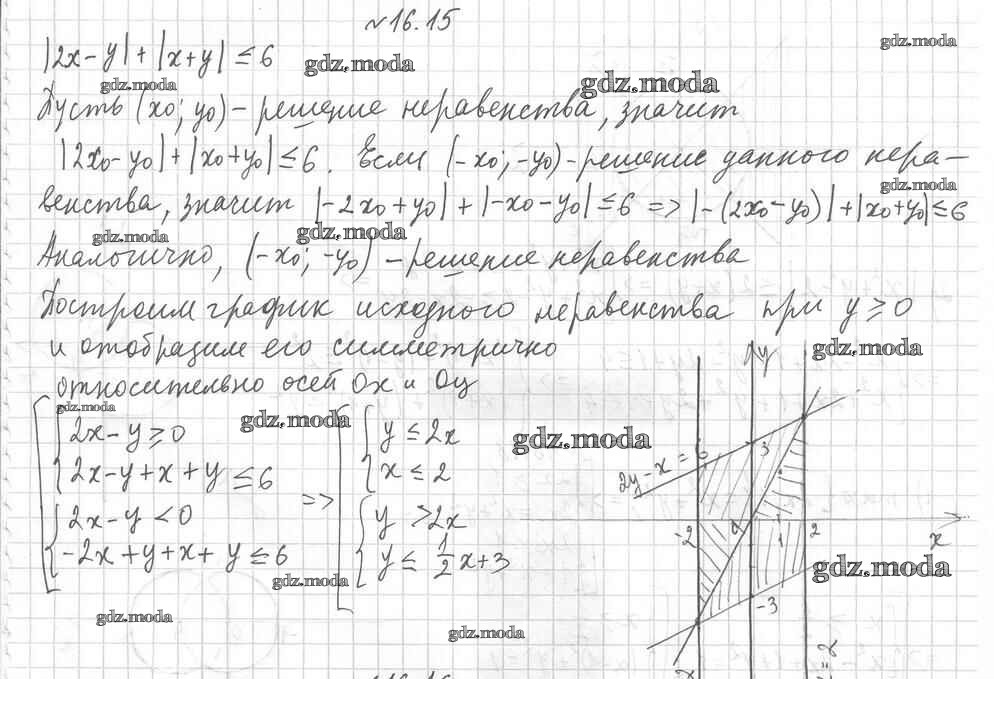 №16.15
|2x-y|+|x+y| ≤ 6
gdz.moda
gdz.moda
gdz.moda
gdz.moda
Пусть (x₀; y₀) - решение неравенства, значит
|2x₀-y₀|+|x₀+y₀| ≤ 6. Если (-x₀; -y₀) - решение данного нера-
gdz.moda
венства, значит |-2x₀+y₀|+|-x₀-y₀| ≤ 6 => |-(2x₀-y₀)|+|x₀+y₀| ≤ 6
gdz.moda
gdz.moda
Аналогично, (-x₀; -y₀) - решение неравенства
Построим график исходного неравенства при y ≥ 0
и отобразим его симметрично
gdz.moda
относительно осей Ox и Oy
gdz.moda
gdz.moda
gdz.moda
2x-y ≥ 0
2x-y+x+y ≤ 6
2x-y < 0
-2x+y+x+y ≤ 6
=>
y ≤ 2x
x ≤ 2
y > 2x
y ≤ 1/2 x+3
y
2y-x=6
3
-2
0
1
2
x
-3
gdz.moda
gdz.moda
gdz.moda
gdz.moda